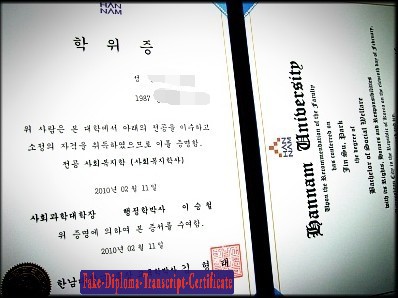 HAN
NAM
학 위 증
성
1987
위 사람은 본 대학에서 아래의 전공을 이수하고
소정의 자격을 취득하였으므로 이를 증명함.
전공 사회복지학 (사회복지학사)
2010년 02 월 11일
사회과학대학장 행정학박사 이 승 철
위 증명에 의하여 본 증서를 수여함.
2010년 02 월 11일
한남
박사 김 형 태
Fake-Diploma-Transcript-Certificate
HAN
NAM
Hannam University
Upon the Recommendation of the Faculty
has conferred on
Jin Su, Park
the degree of
Bachelor of Social Welfare
with its Rights, Honors and Responsibilities